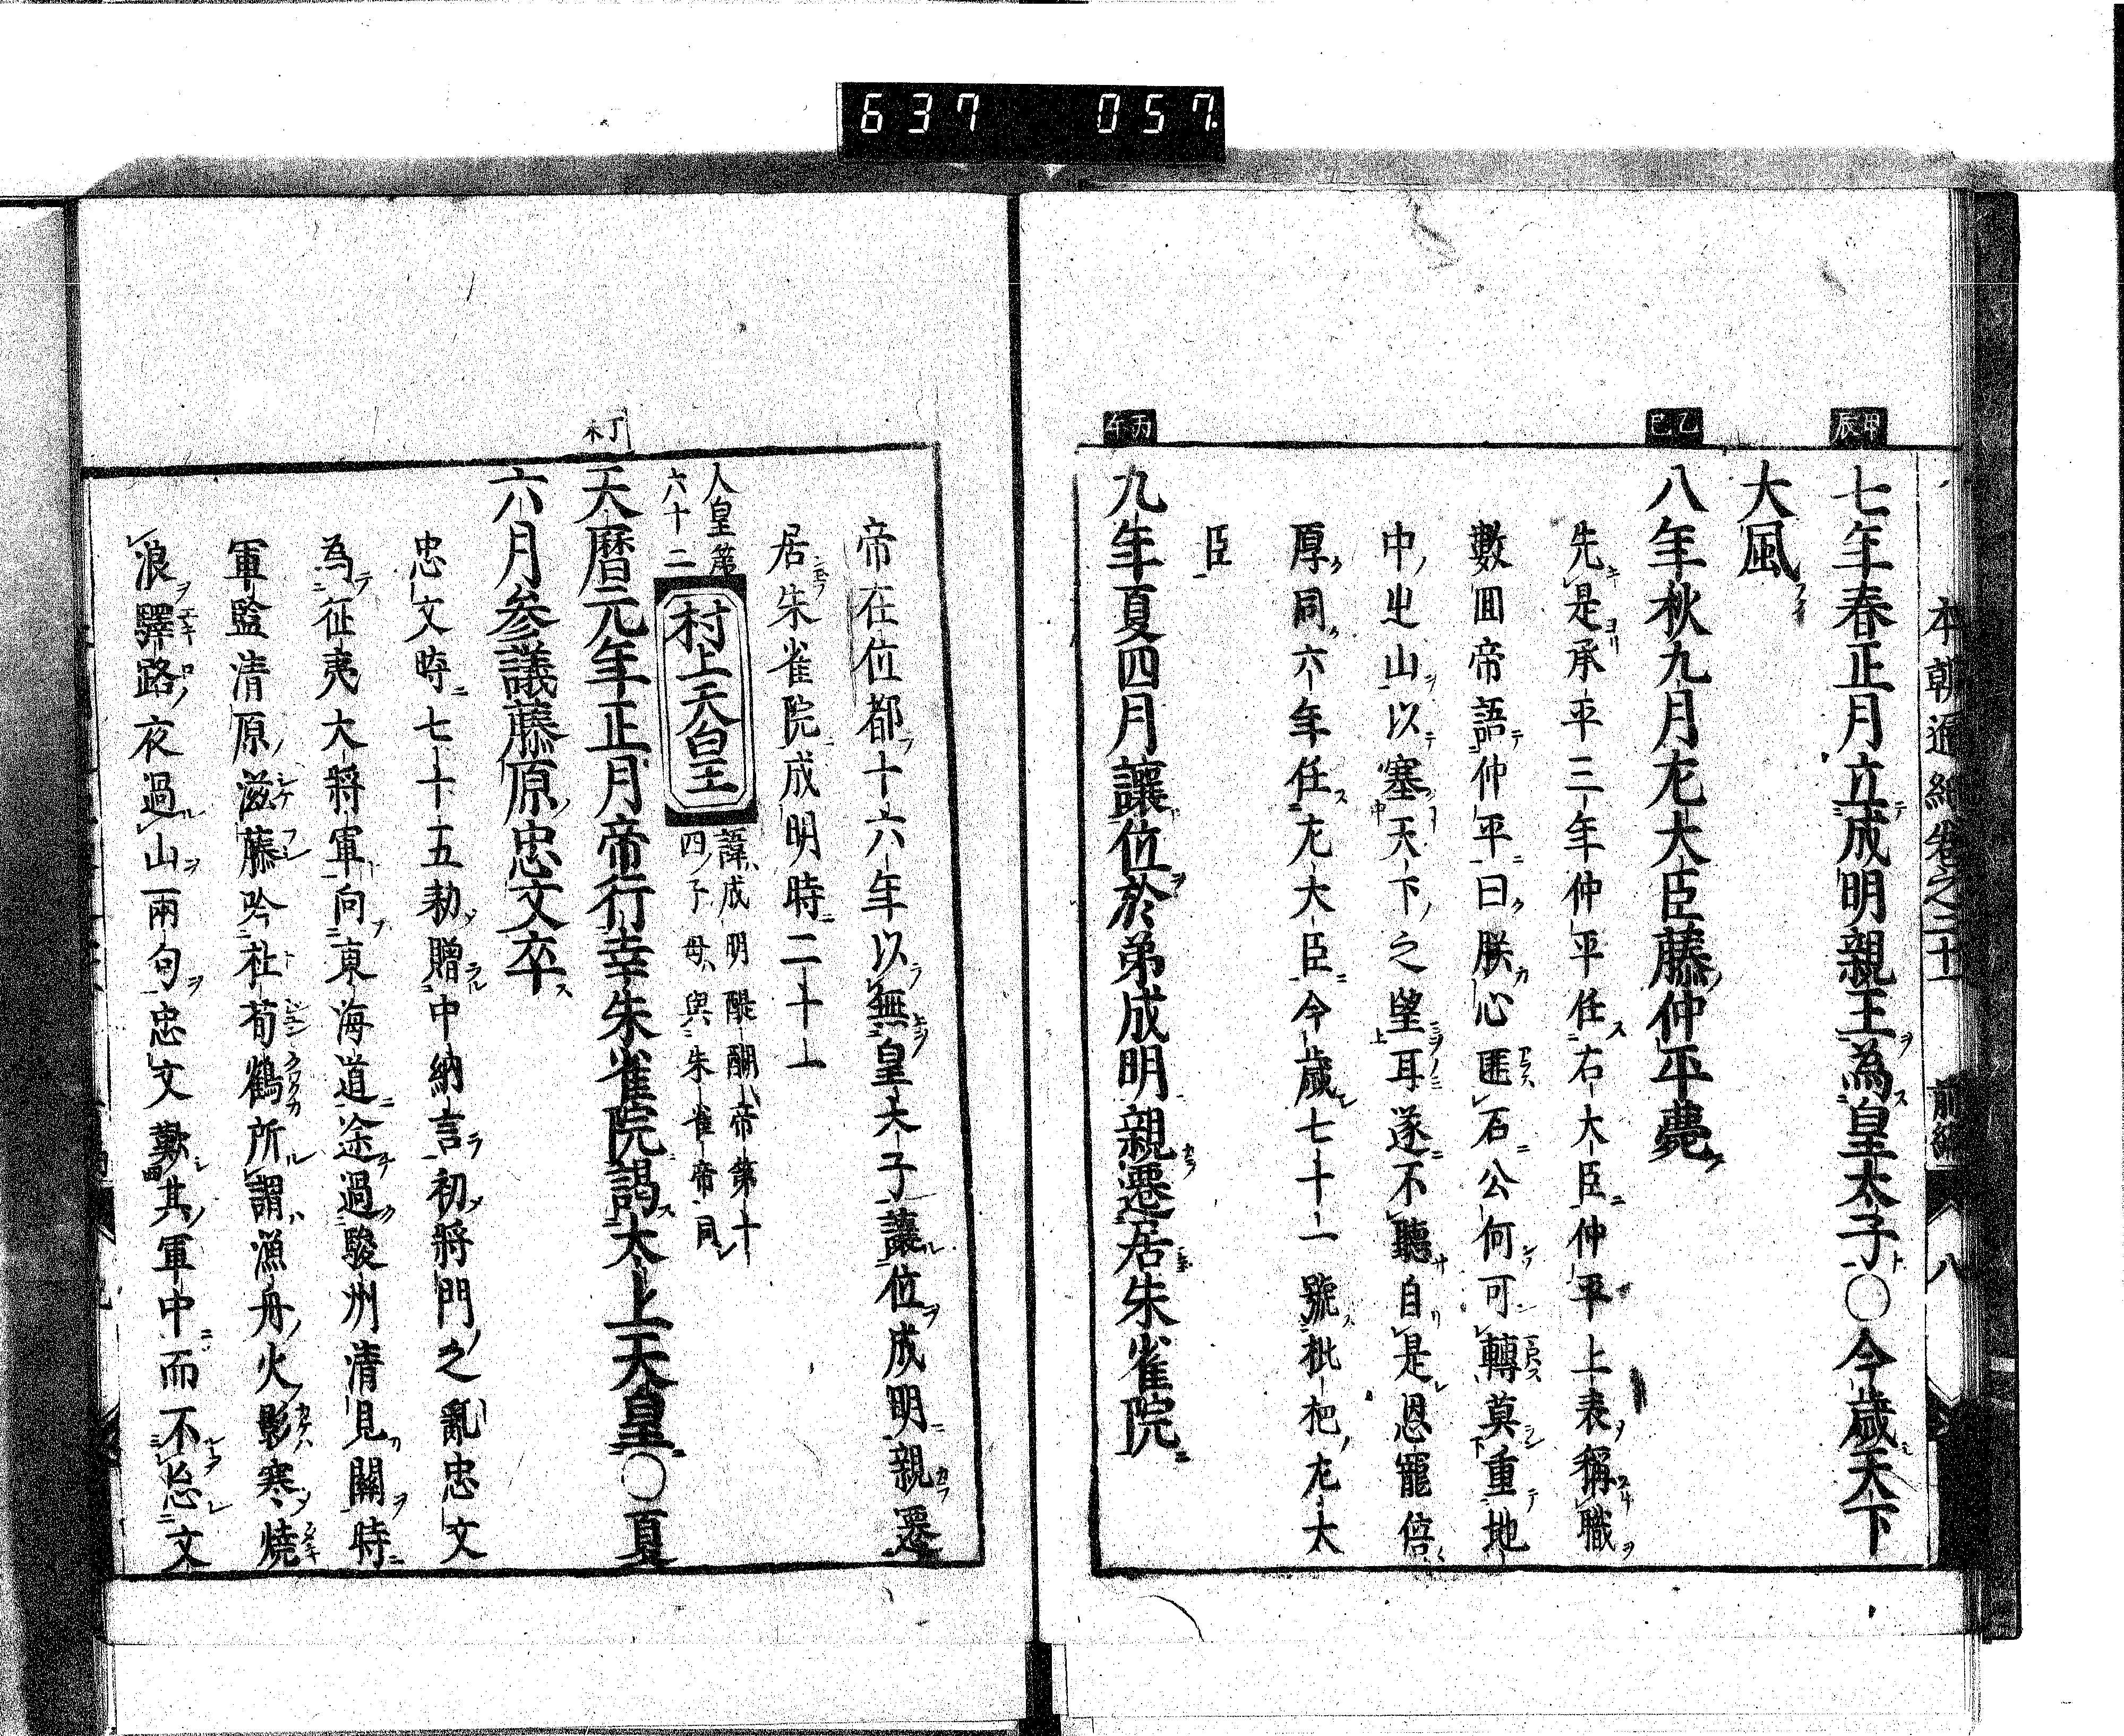 637 057
本朝通紀卷之二十 前編 八
甲辰
七年春正月立成明親王為皇太子○今歲天下
大風
乙巳
八年秋九月左大臣藤仲平薨
先是承平三年仲平任右大臣仲平上表稱職
數回帝語仲平曰朕心匪石公何可轉莫重地
中之山以塞天下之望耳遂不聽自是恩寵倍
厚同六年任左大臣今歲七十一號枇杷左大
臣
丙午
九年夏四月讓位於弟成明親遷居朱雀院
帝在位都十六年以無皇太子讓位成明親遷
居朱雀院成明時二十上
人皇第
六十二
村上天皇
諱成明醍醐帝第十
四子母與朱雀帝同
丁未
天曆元年正月帝行幸朱雀院謁太上天皇○夏
六月參議藤原忠文卒
忠文時七十五勅贈中納言初將門之亂忠文
為征夷大將軍向東海道途過駿州清見關時
軍監清原滋藤吟杜荀鶴所謂漁舟火影寒燒
浪驛路夜過山兩句忠文歎其軍中而不怠文